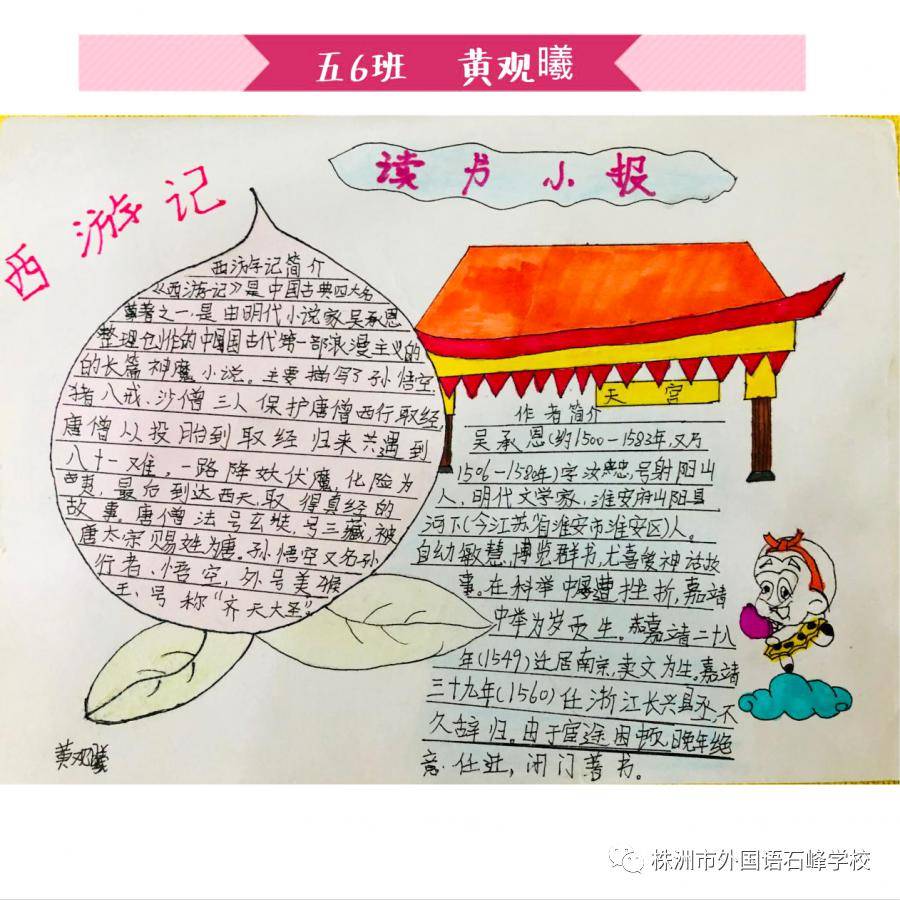 五6班 黄观曦
读书小报
西游记
西游记简介
《西游记》是中国古典四大名
著之一.是由明代小说家吴承恩
整理创作的中国古代第一部浪漫主义的
的长篇神魔小说。主要描写了孙悟空,
猪八戒、沙僧三人保护唐僧西行取经,
唐僧从投胎到取经归来共遇到
八十一难,一路降妖伏魔,化险为
夷,最后到达西天,取得真经的
故事。唐僧法号玄奘,号三藏,被
唐太宗赐姓为唐。孙悟空又名孙
行者、悟空,外号美猴
王、号称“齐天大圣”。
天宫
作者简介
吴承恩(约1500-1583年,又乃
1506-1580年)字汝忠,号射阳山
人,明代文学家,淮安府山阳县
河下(今江苏省淮安市淮安区)人。
自幼敏慧,博览群书,尤喜爱神话故
事。在科举中屡遭挫折,嘉靖
中举为岁贡生。嘉靖二十八
年(1549)迁居南京,卖文为生。嘉靖
三十九年(1560)任浙江长兴县丞,不
久辞归。由于宦途困顿,晚年绝
意仕进,闭门著书。
黄观曦
株洲市外国语石峰学校